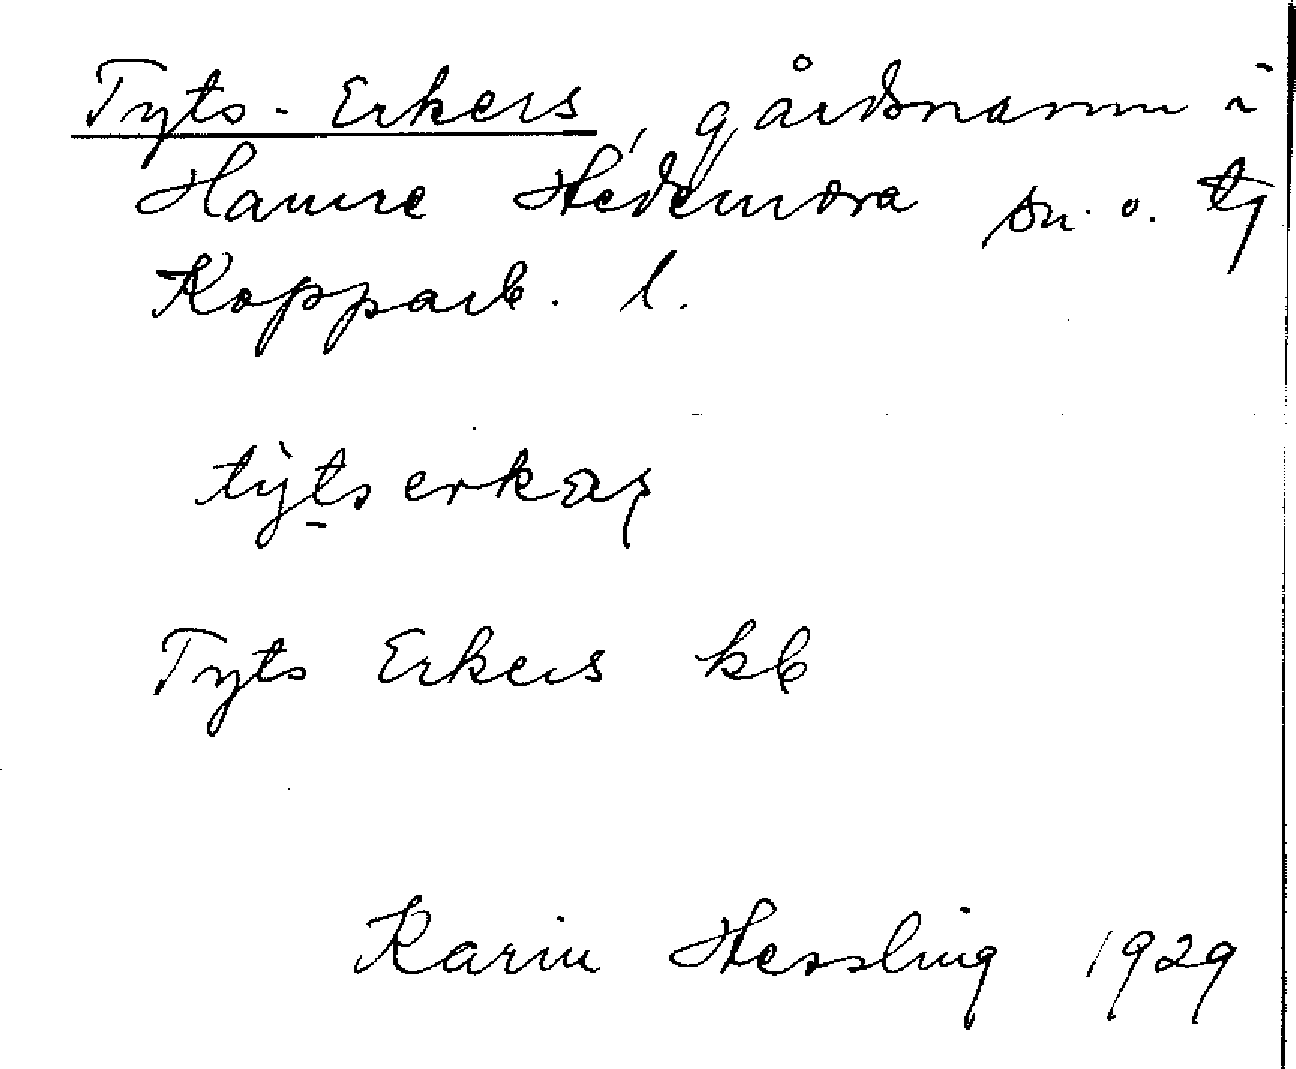 Tyts-Erkers, gårdsnamn i
Hamre Hedemora sn. o. tg
Kopparb. l.
tỳts erkas
Tyts Erkers kb
Karin Hessling 1929